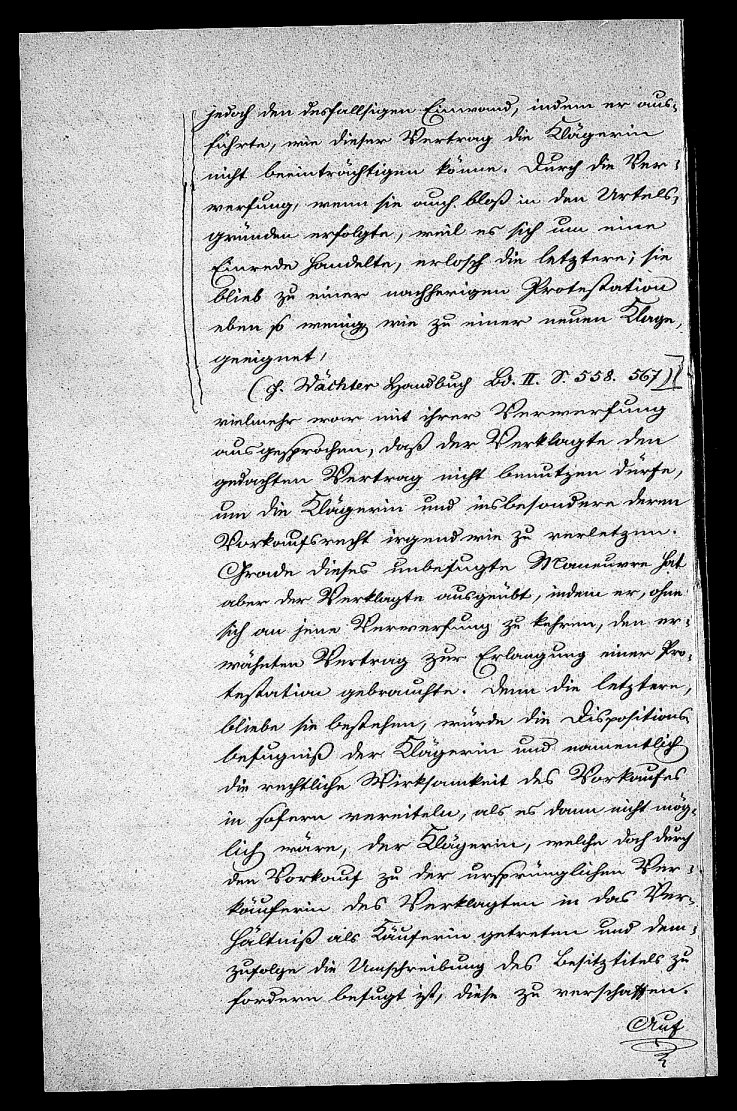 jedoch den desfallsigen Einwand, indem er aus-
führte, wie dieser Vertrag die Klägerin
nicht beeinträchtigen könne. Durch die Ver-
werfung, wenn sie auch bloß in den Urtels-
gründen erfolgte, weil es sich um eine
Einrede handelte, erlosch die letztere; sie
blieb zu einer nachherigen Protestation
eben so wenig wie zu einer neuen Klage,
geeignet,
(cf. Wächter Handbuch Bd. II. S. 558. 567)
vielmehr war mit ihrer Verwerfung
ausgesprochen, daß der Verklagte den
gedachten Vertrag nicht benutzen dürfe,
um die Klägerin und insbesondere deren
Vorkaufsrecht irgend wie zu verletzen.
Grade dieses unbefugte Maneuvre hat
aber der Verklagte ausgeübt, indem er, ohne
sich an jene Verwerfung zu kehren, den er-
wähnten Vertrag zur Erlangung einer Pro-
testation gebrauchte. Denn die letztere,
bliebe sie bestehen, würde die Dispositions
befugniß der Klägerin und namentlich
die rechtliche Wirksamkeit des Vorkaufes
in sofern vereiteln, als es dann nicht mög-
lich wäre, der Klägerin, welche doch durch
den Vorkauf zu der ursprünglichen Ver-
käuferin des Verklagten in das Ver-
hältniß als Käuferin getreten und dem-
zufolge die Umschreibung des Besitztitels zu
fordern befugt ist, diese zu verschaffen.
Auf